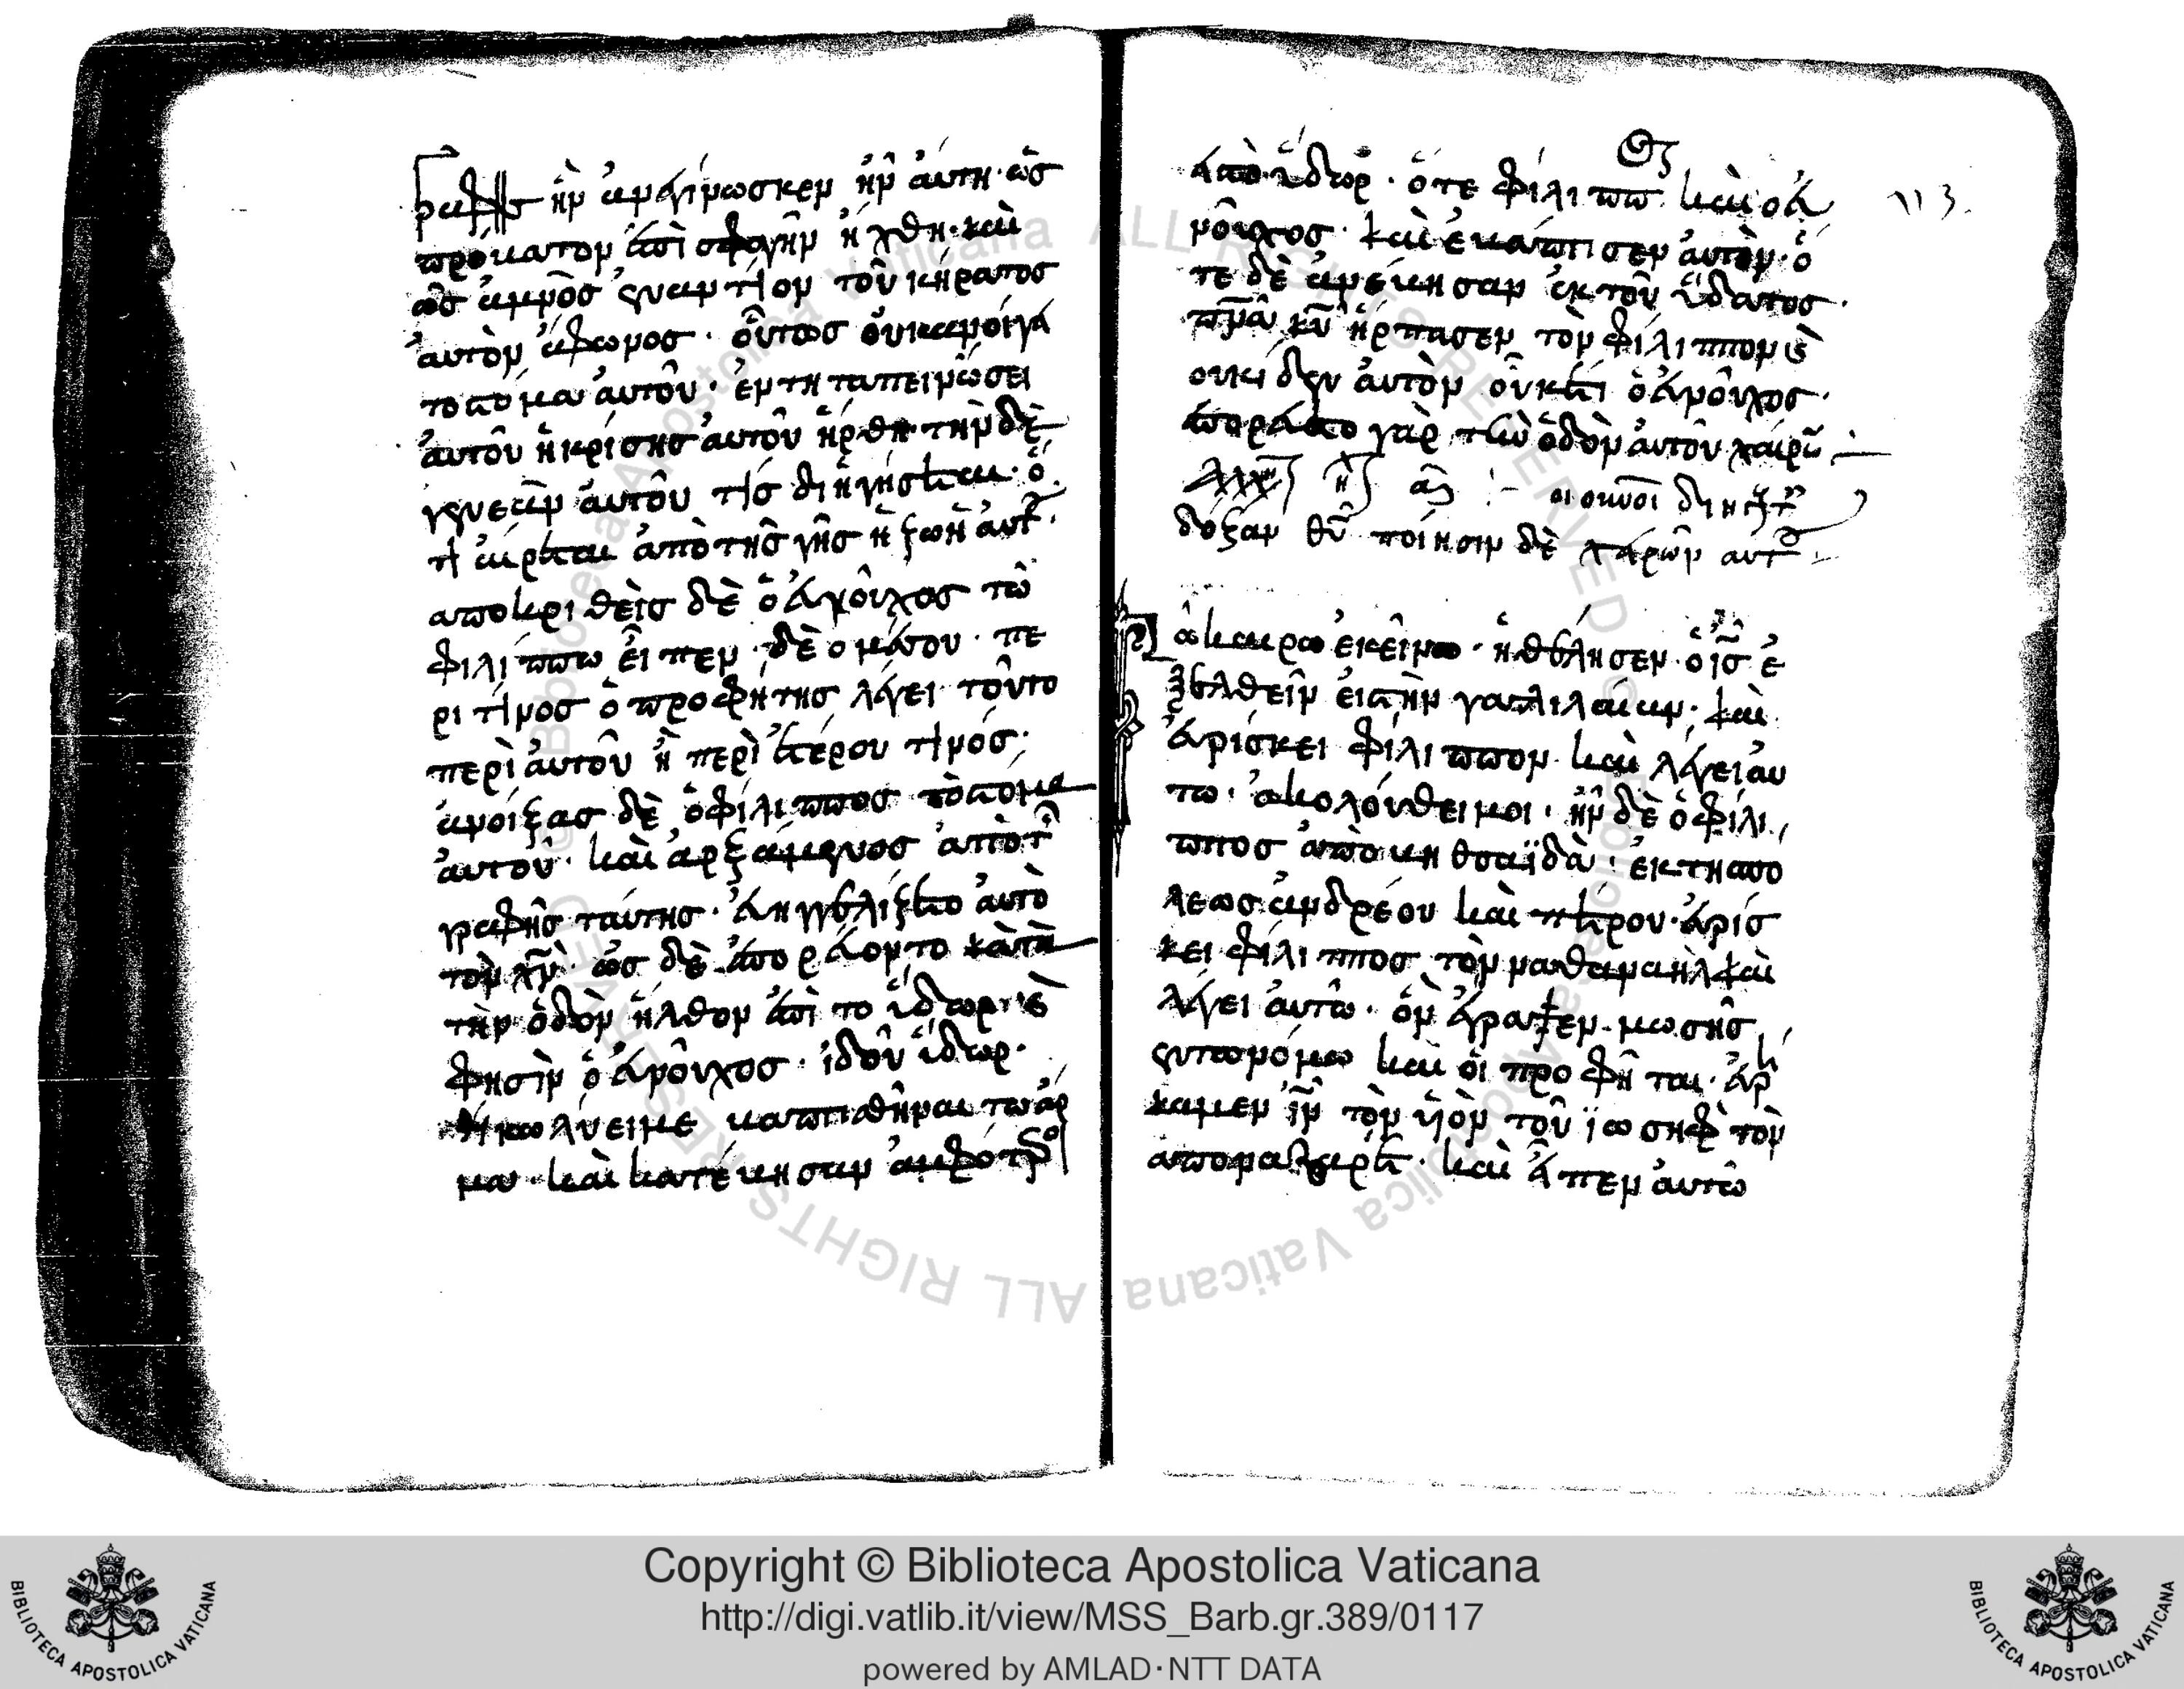 γραφῆς ἣν ἀνεγίνωσκεν ἦν ἁύτη· ὡς
πρόβατον ἐπὶ σφαγὴν ἤχθη· καὶ
ὡς ἀμνὸς ἐναντίον τοῦ κήραντος
ἀυτὸν ἄφωνος· οὕτως ὀυκ ἀνοίγει
το στόμα ἀυτοῦ· ἐν τη ταπεινώσει
ἀυτοῦ ἡ κρίσης ἀυτοῦ ἤρθη τὴν δὲ
γενεὰν ἀυτοῦ τίς διηγήσεται· ὅ
τι ἄιρεται ἀπὸ τῆς γῆς ἡ ζωὴ ἀυτοῦ·
αποκριθεὶς δὲ ὁ ἐυνοῦχος τῶ
φιλίππω εἶπεν· δέομαί σου· πε
ρι τίνος ὁ προφήτης λέγει τοῦτο
περὶ ἀυτοῦ ἢ περὶ ἑτέρου τινός;
ἀνοίξας δὲ ὁ φίλιππος τὸ στόμα
ἀυτοῦ· καὶ ἀρξάμενος ἀπὸ τῆς
γραφῆς ταύτης· ἐυηγγελίζετο ἀυτὸ
τὸν ιν· ὡς δὲ ἐπορέυοντο κατὰ
τὴν ὁδὸν ἦλθον ἐπὶ το ὕδωρ· καὶ
φησὶν ὁ ἐυνοῦχος· ἰδοῦ ὕδωρ·
τί κωλύει με βαπτισθῆναι
μα· καὶ κατέβησαν ἀμφότεροι
ἐπὶ ὕδωρ· ὅτε φίλιππω καὶ ὁ ἐυ
νοῦχος· καὶ ἐβάπτισεν ἀυτὸν· ὅ
τε δὲ ἀνέβησαν ἐκ τοῦ ὕδατος·
πνᾶ κῦ ἥρπασεν τὸν φίλιππον καὶ
ουκ ἶδεν ἀυτὸν οὐκέτι ὁ ἐυνοῦχος·
ἐπορέυετο γὰρ τὴν ὁδὸν ἀυτοῦ χαίρων
οι ουνοὶ διηγοῦντ
δόξαν θῦ ποίησιν δὲ χειρῶν αυτοῦ
113.
Τῶ καιρω ἐκείνω· ἠθέλησεν ὁ ις ἐ
ξελθεῖν εις τὴν γαλιλαίαν· καὶ
ἑυρίσκει φίλιππον καὶ λέγει ἀυ
τω· ἀκολούθει μοι· ἦν δὲ ὁ φίλι
ππος ἀπὸ βηθσαϊδὰ· ἐκ τησ πο
λεως ἀνδρέου καὶ πέτρου· ἑυρίσ
κει φίλιππος τὸν ναθαναὴλ καὶ
λέγει ἀυτῶ· ὃν ἔγραψεν μωσῆς
ἐν τω νόμω καὶ ὁι προφῆται· ἑυρή
καμεν ιν τὸν υἱὸν τοῦ ϊωσὴφ τὸν
απο ναζαρέτ· καὶ εἶπεν ἀυτῶ
Copyright © Biblioteca Apostolica Vaticana
http://digi.vatlib.it/view/MSS_Barb.gr.389/0117
powered by AMLAD·NTT DATA
BIBLIOTECA APOSTOLICA VATICANA
BIBLIOTECA APOSTOLICA VATICANA